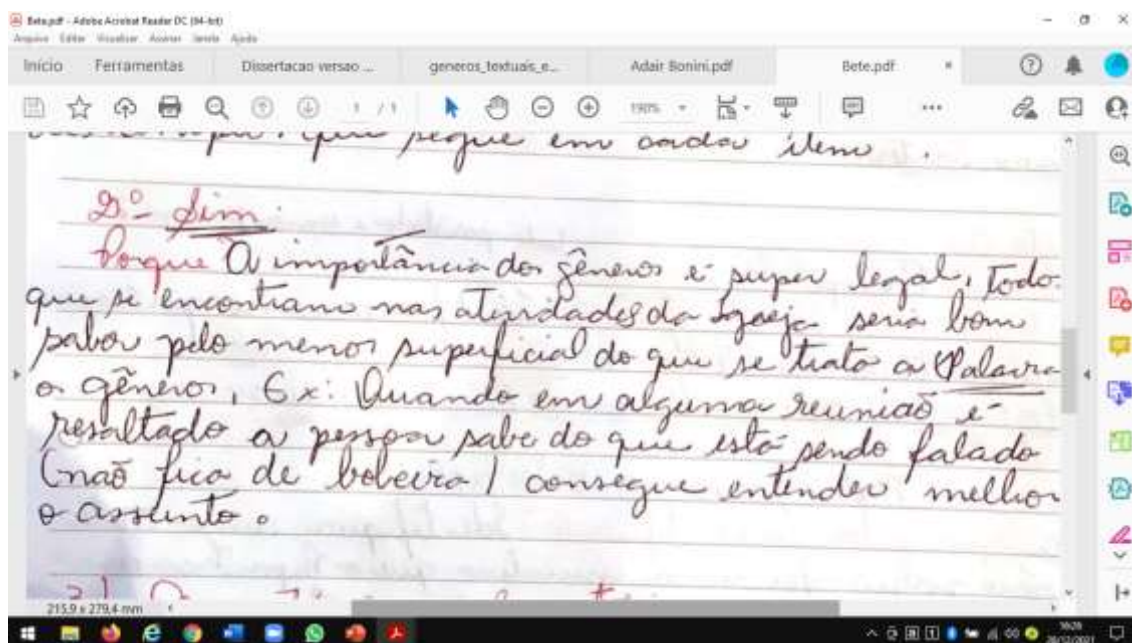 Bete.pdf - Adobe Acrobat Reader DC (64-bit)
Arquivo Editar Visualizar Assinar Janela Ajuda
Início Ferramentas Dissertacao versao ... generos_textuais_e... Adair Bonini.pdf Bete.pdf ×
1 / 1 190%
que segue em cada item .
2º- Sim.
Porque A importância dos gêneros é super legal, Todo
que se encontram nas atividades da Igreja seria bom
saber pelo menos superficial do que se trata a Palavra
o gêneros, Ex: Quando em alguma reunião é
resaltado a pessoa sabe do que está sendo falado
(não fica de bobeira) consegue entender melhor
o assunto.
215,9 x 279,4 mm
16:26
28/12/2021